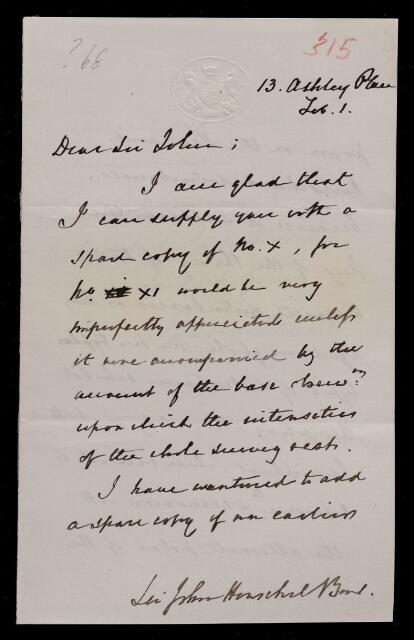 ? 66
315
13. Ashley Place
Feb. 1.
Dear Sir John;
I am glad that
I can supply you with a
spare copy of No. X, for
No. XI would be very
imperfectly appreciated unless
it were accompanied by the
account of the base
upon which the intensities
of the whole survey rest.
I have ventured to add
a spare copy of an earlier
Sir John Herschel Bart.